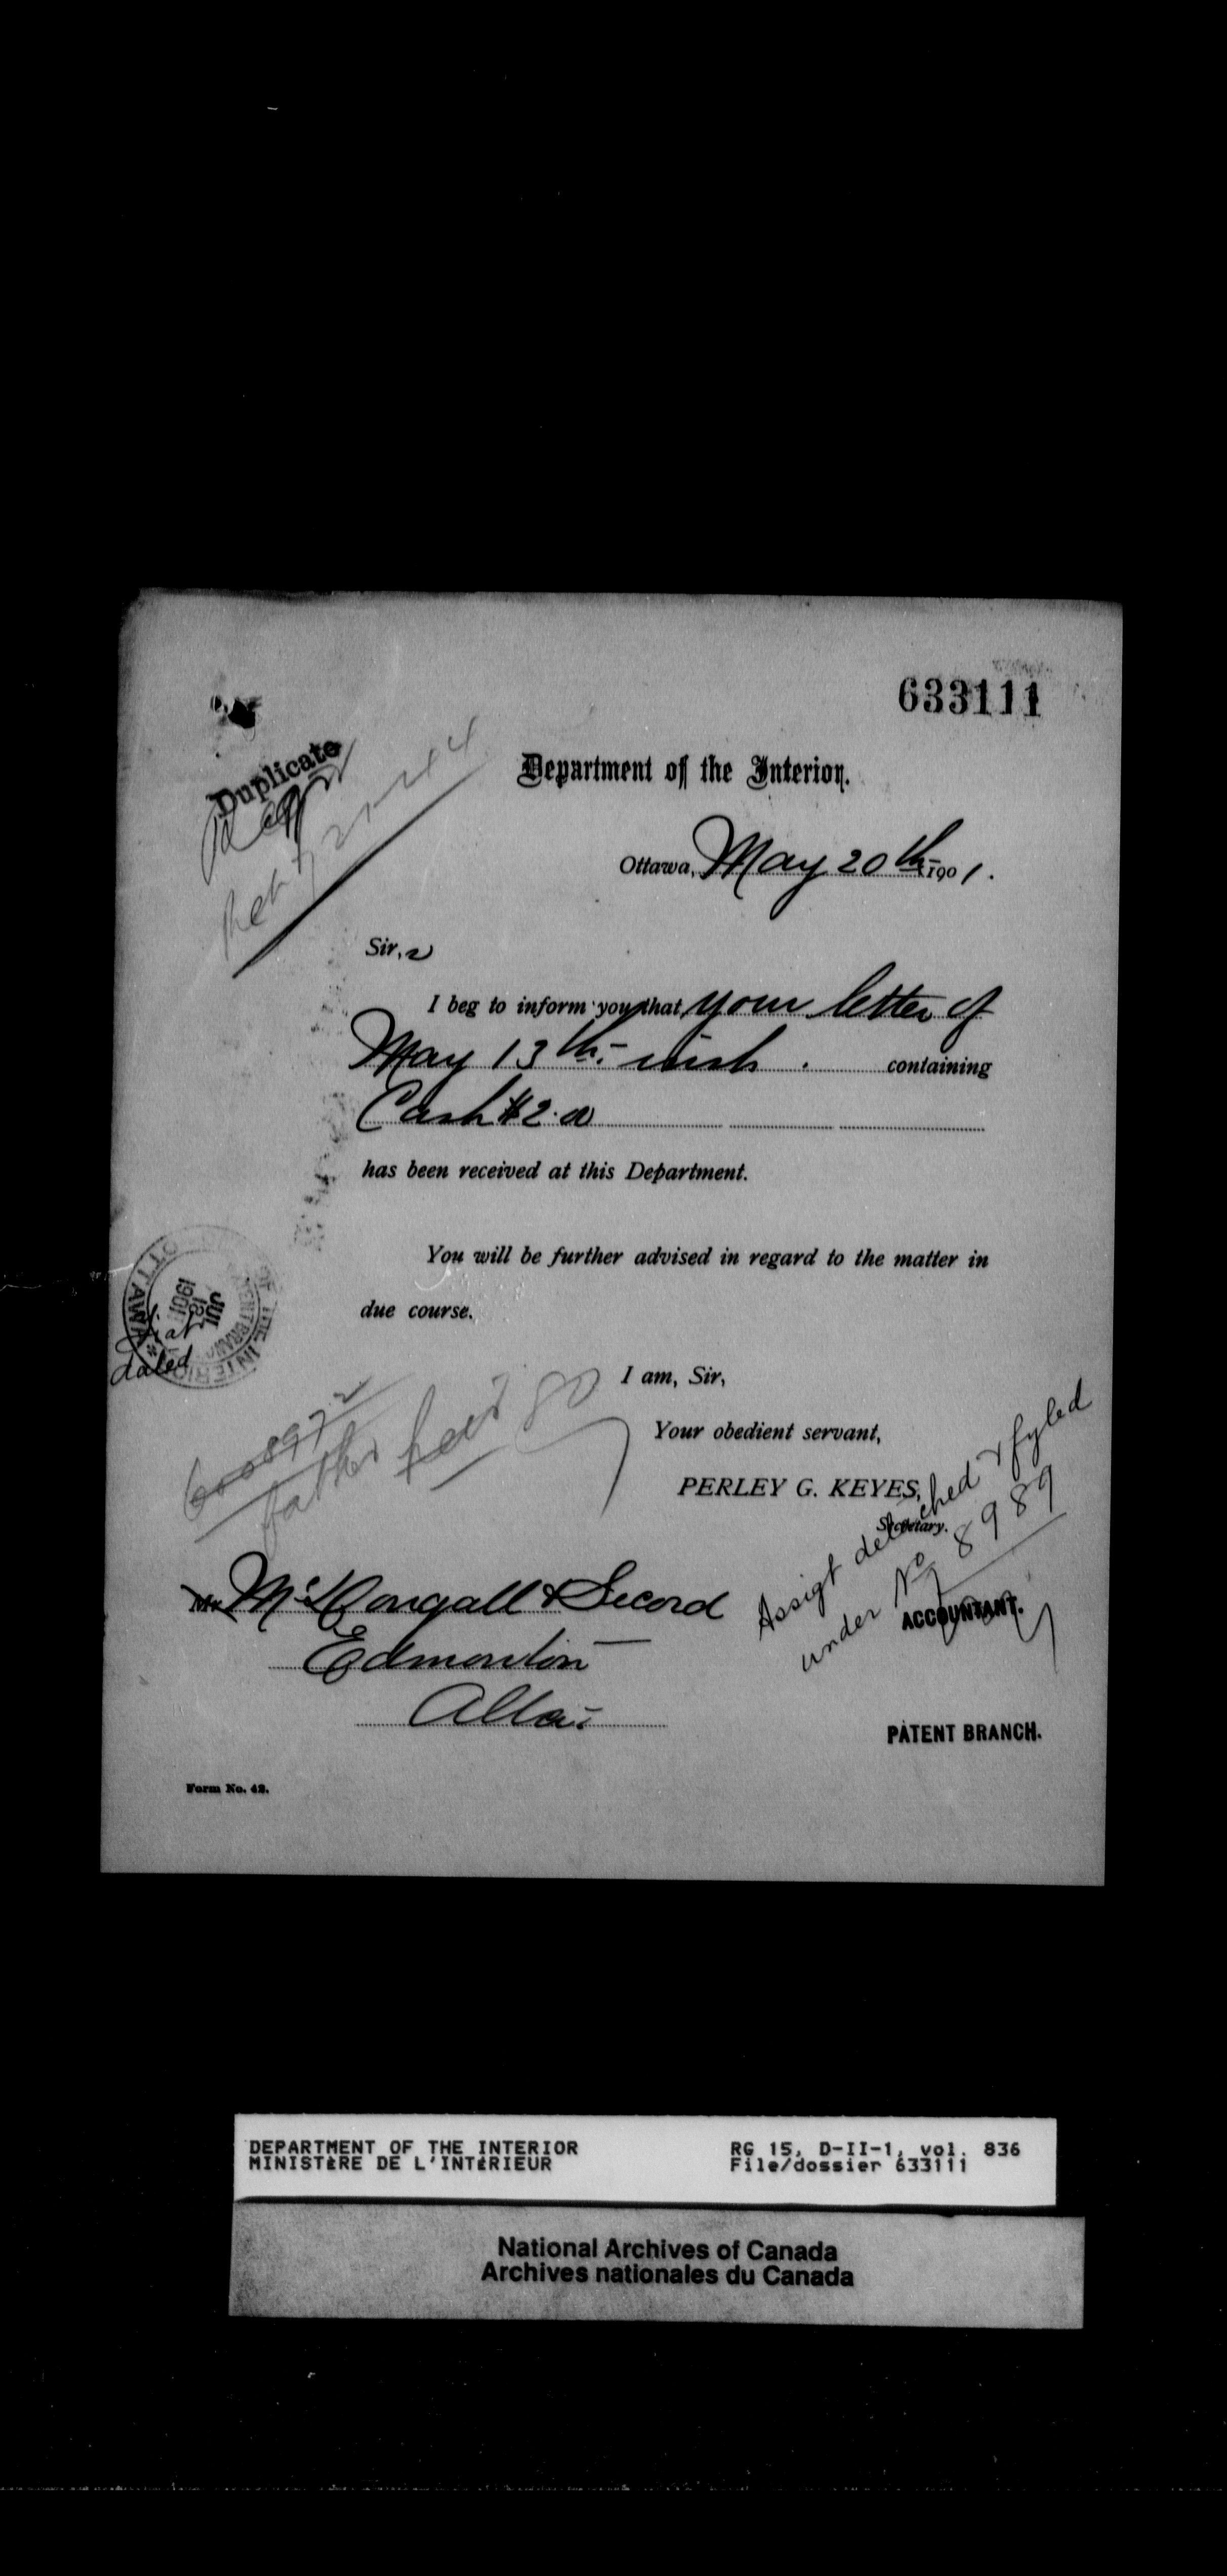 633111
Duplicate
Department of the Interior.
Ottawa, May 20th 1901.
Sir,
I beg to inform you that your letter of
May 13th inst. containing
Cash $2.00
has been received at this Department.
You will be further advised in regard to the matter in
due course.
JUL
18
1901
OTTAWA
dated
I am, Sir,
Your obedient servant,
PERLEY G. KEYES,
Secretary.
Assigt detached & fyled
under No 8989
ACCOUNTANT.
Mr McDougall & Secord
Edmonton
Alta.
PATENT BRANCH.
Form No. 42.
DEPARTMENT OF THE INTERIOR RG 15, D-II-1, vol. 836
MINISTÈRE DE L'INTÉRIEUR File/dossier 633111
National Archives of Canada
Archives nationales du Canada